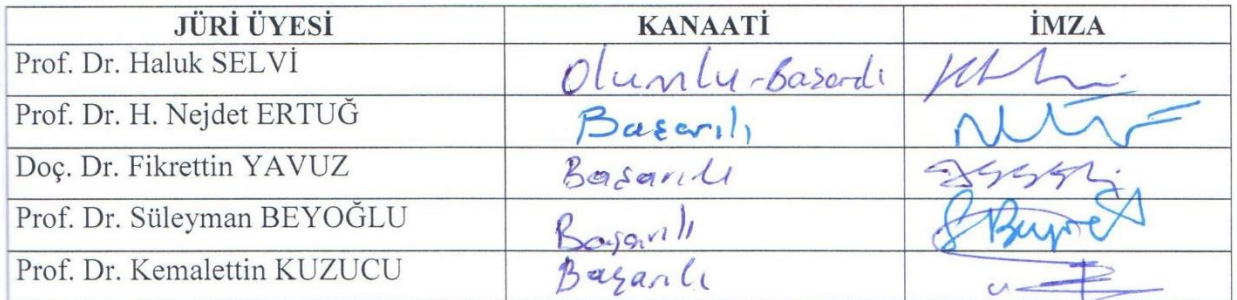 JÜRİ ÜYESİ KANAATİ İMZA
Prof. Dr. Haluk SELVİ Olumlu-Başarılı
Prof. Dr. H. Nejdet ERTUĞ Başarılı
Doç. Dr. Fikrettin YAVUZ Başarılı
Prof. Dr. Süleyman BEYOĞLU Başarılı
Prof. Dr. Kemalettin KUZUCU Başarılı